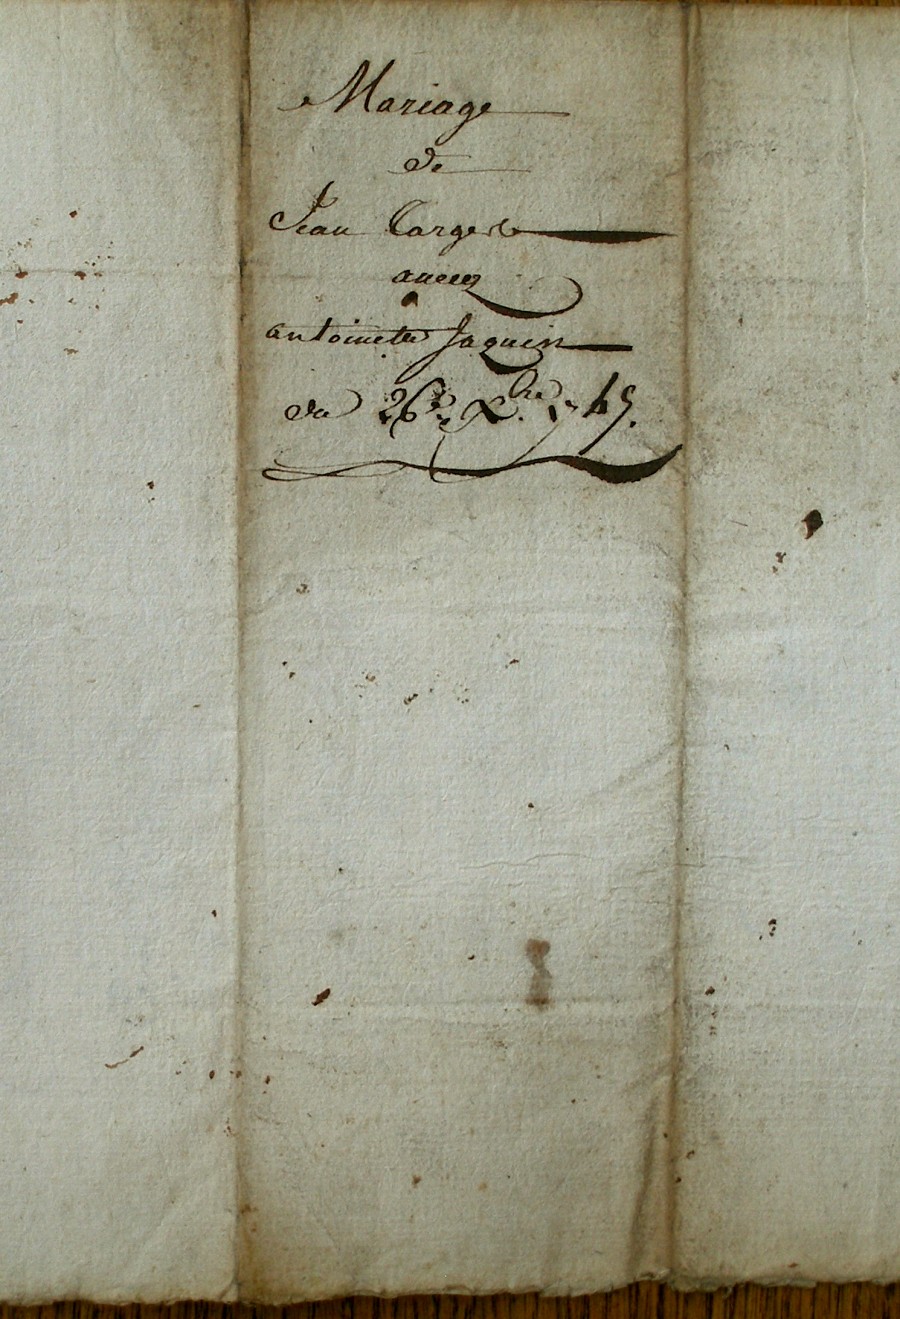 Mariage
de
Jean
auecq
antoinette Jaquin
du 26e Xbre 1745.